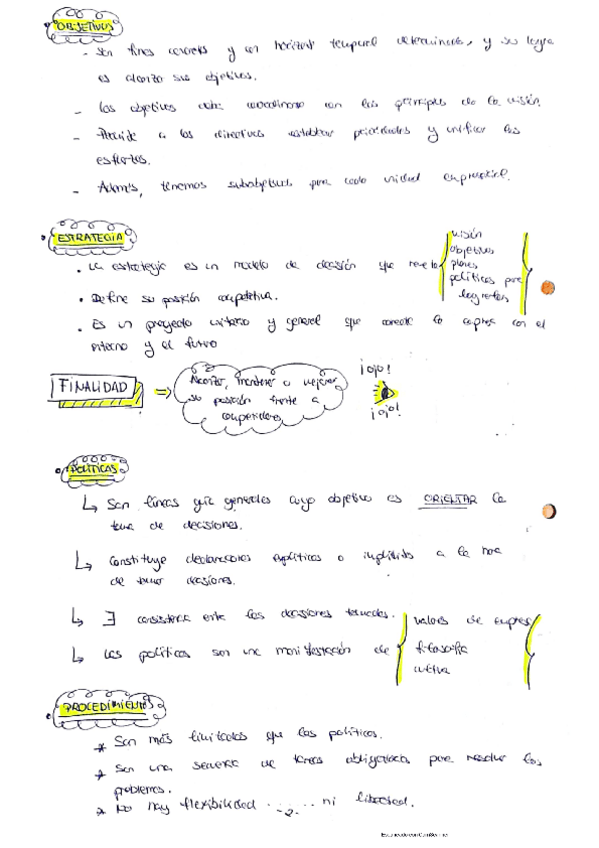 OBJETIVOS
- Son fines concretos y con horizonte temporal determinado, y su logro
es alcanzar sus objetivos.
- Los objetivos debe coordinarse con los principios de la visión
- a los directivos establecer prioridades y unificar los
esfuerzos.
- Además, tenemos subobjetivos por cada unidad empresarial.
ESTRATEGIA
• La estrategia es un modelo de decisión que revela
visión
objetivos
planes
políticas para
lograrlos
• Define su posición competitiva.
• Es un proyecto unitario y general que conecte la empresa con el
entorno y el futuro
FINALIDAD ⇒ Alcanzar, mantener o mejorar
su posición frente a
competidores
¡ojo!
¡ojo!
POLÍTICAS
↳ Son líneas guía generales cuyo objetivo es ORIENTAR la
toma de decisiones.
↳ Constituye declaraciones explícitas o implícitas a la hora
de tomar decisiones.
↳ ∃ consistencia entre las decisiones tomadas.
↳ Las políticas son una manifestación de
valores de empresa
filosofía
cultura
PROCEDIMIENTOS
* Son más limitados que las políticas.
* Son una secuencia de tareas obligatorias para resolver los
problemas.
* No hay flexibilidad ni libertad.
-2-
Escaneado con CamScanner